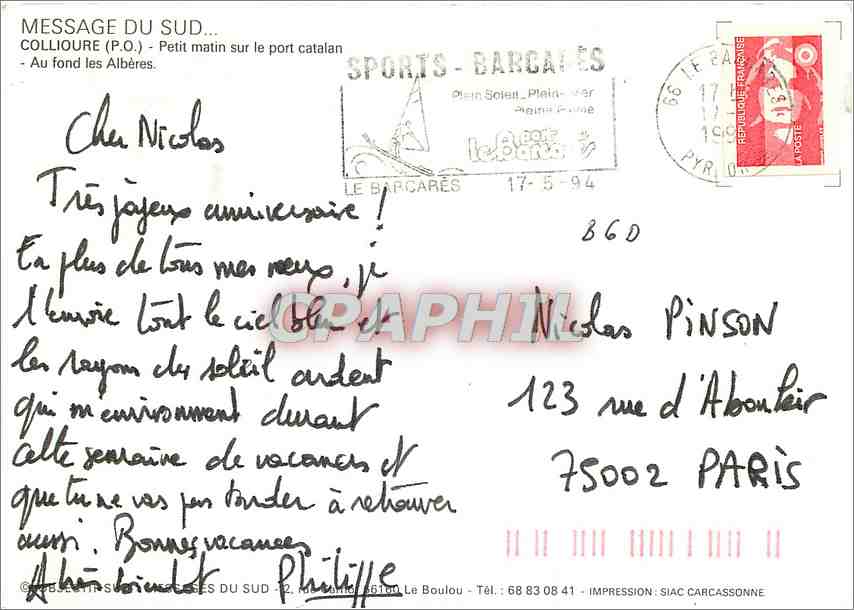 MESSAGE DU SUD...
COLLIOURE (P.O.) - Petit matin sur le port catalan
- Au fond les Albères.
SPORTS - BARCARÈS
Plein Soleil - Plein
LE BARCARÈS 17-5-94
66 LE BA
17
PYR. OR
REPUBLIQUE FRANÇAISE
LA POSTE
Cher Nicolas
Très joyeux anniversaire !
En plus de tous mes vœux, je
t'envoie tout le ciel bleu et
les rayons du soleil ardent
qui m'environnent durant
cette semaine de vacances et
que tu ne vas pas tarder à retrouver
aussi. Bonnes vacances
A très bientôt Philippe
BGD
Nicolas PINSON
123 rue d'Aboukir
75002 PARIS
CPAPHIL
MESSAGES DU SUD - 2, rue 66160 Le Boulou - Tél. : 68 83 08 41 - IMPRESSION: SIAC CARCASSONNE